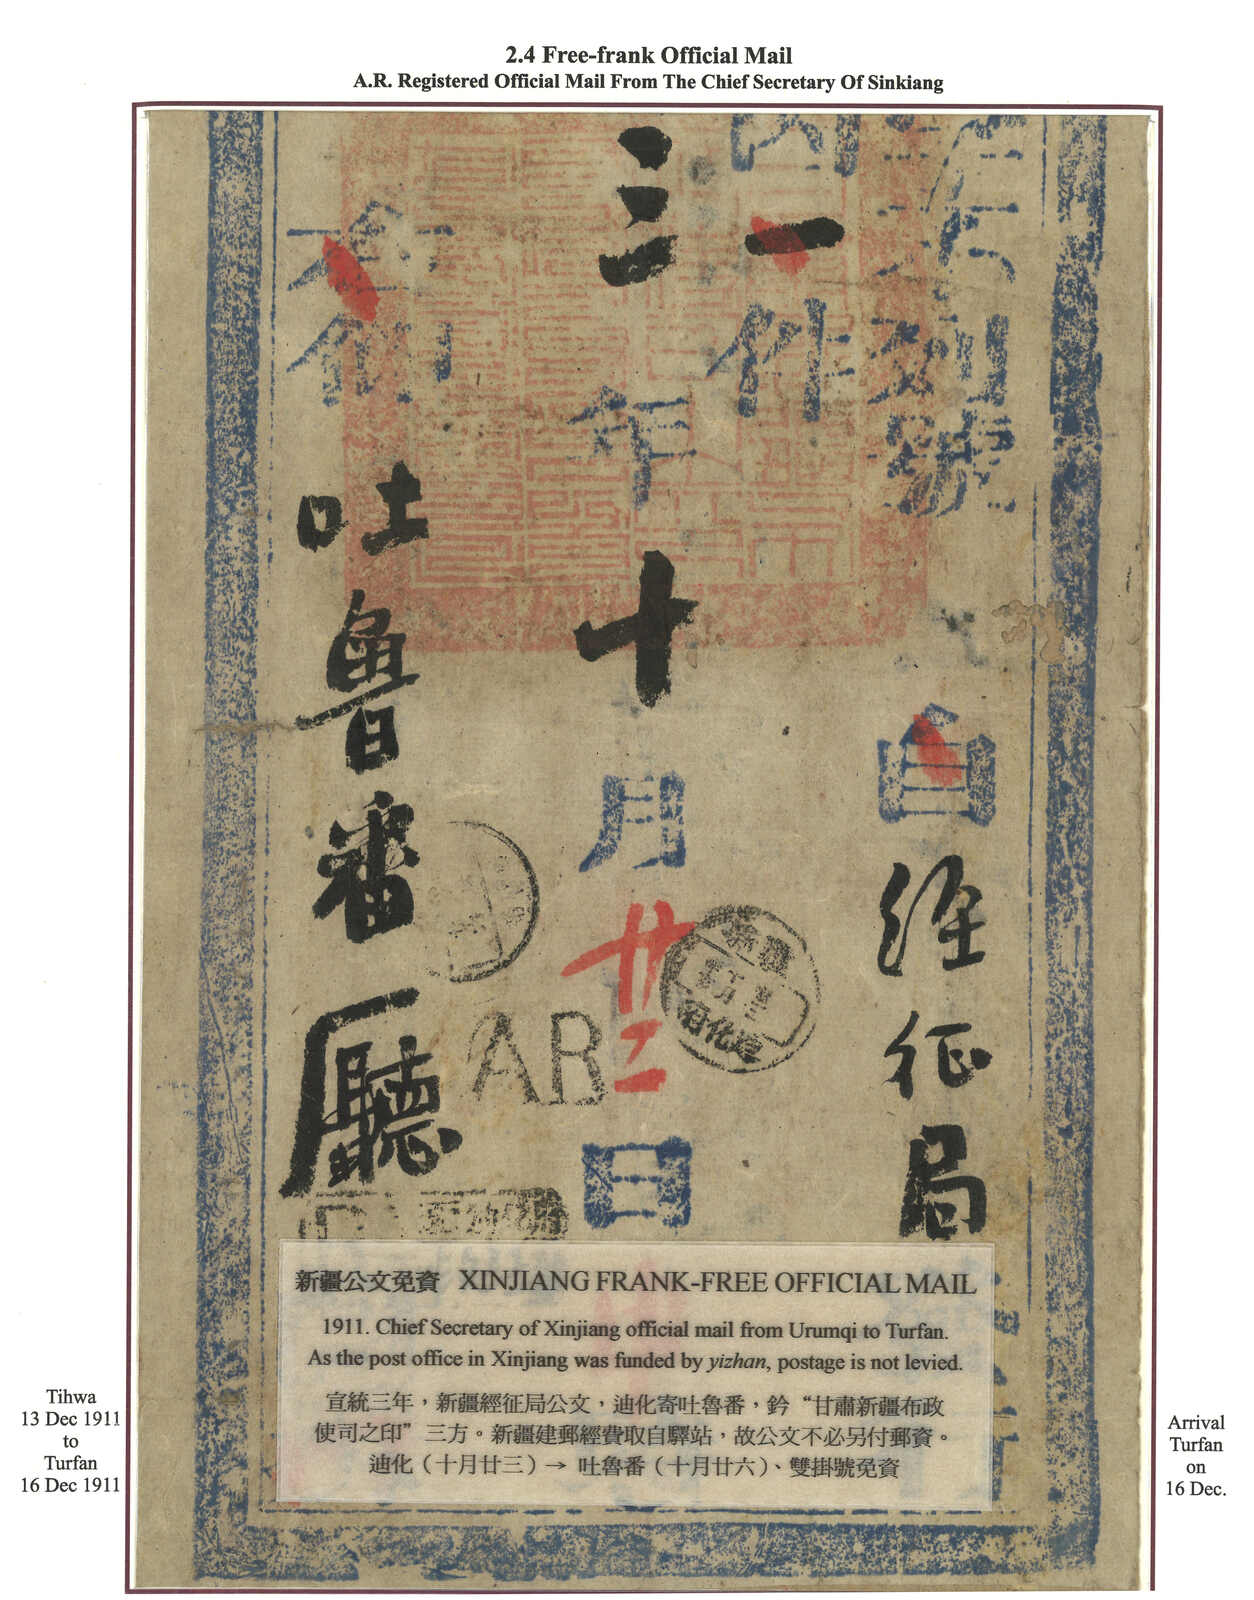 2.4 Free-frank Official Mail
A.R. Registered Official Mail From The Chief Secretary Of Sinkiang
列號
自經征局
一件
三年十月廿二日
吐魯番廳
新疆
迪化府
AR
新疆公文免資 XINJIANG FRANK-FREE OFFICIAL MAIL
1911. Chief Secretary of Xinjiang official mail from Urumqi to Turfan.
As the post office in Xinjiang was funded by yizhan, postage is not levied.
宣統三年，新疆經征局公文，迪化寄吐魯番，鈐“甘肅新疆布政
使司之印”三方。新疆建郵經費取自驛站，故公文不必另付郵資。
迪化（十月廿三）→ 吐魯番（十月廿六）、雙掛號免資
Tihwa
13 Dec 1911
to
Turfan
16 Dec 1911
Arrival
Turfan
on
16 Dec.